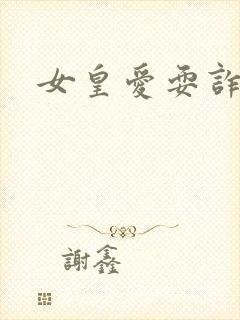 女皇愛耍詐
謝鑫